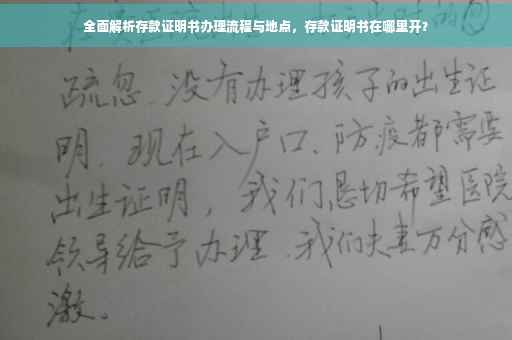 全面解析存款证明书办理流程与地点，存款证明书在哪里开？
疏忽、没有办理孩子的出生证
明、现在入户口、防疫都需要
出生证明，我们恳切希望医院
领导给予办理、我们夫妻万分感
激。